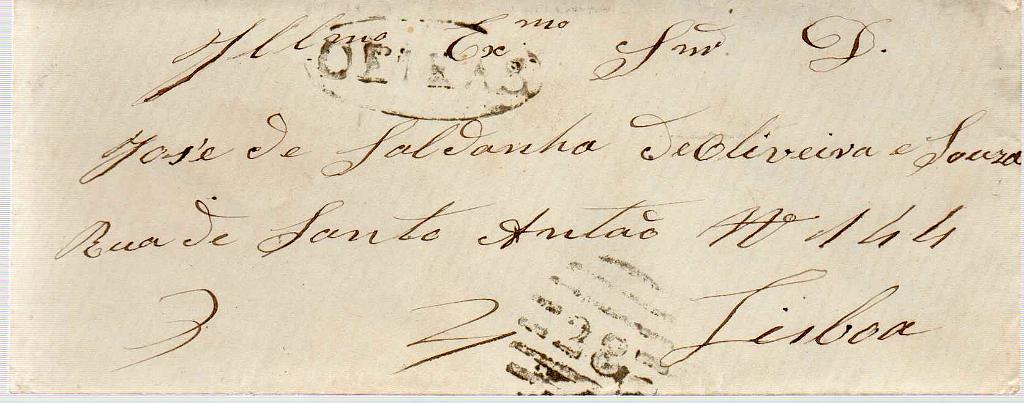 Illmo. Exmo Snr. D.
OEIRAS
José de Saldanha de Oliveira e Souza
Rua de Santo Antão Nº 144
Lisboa
28